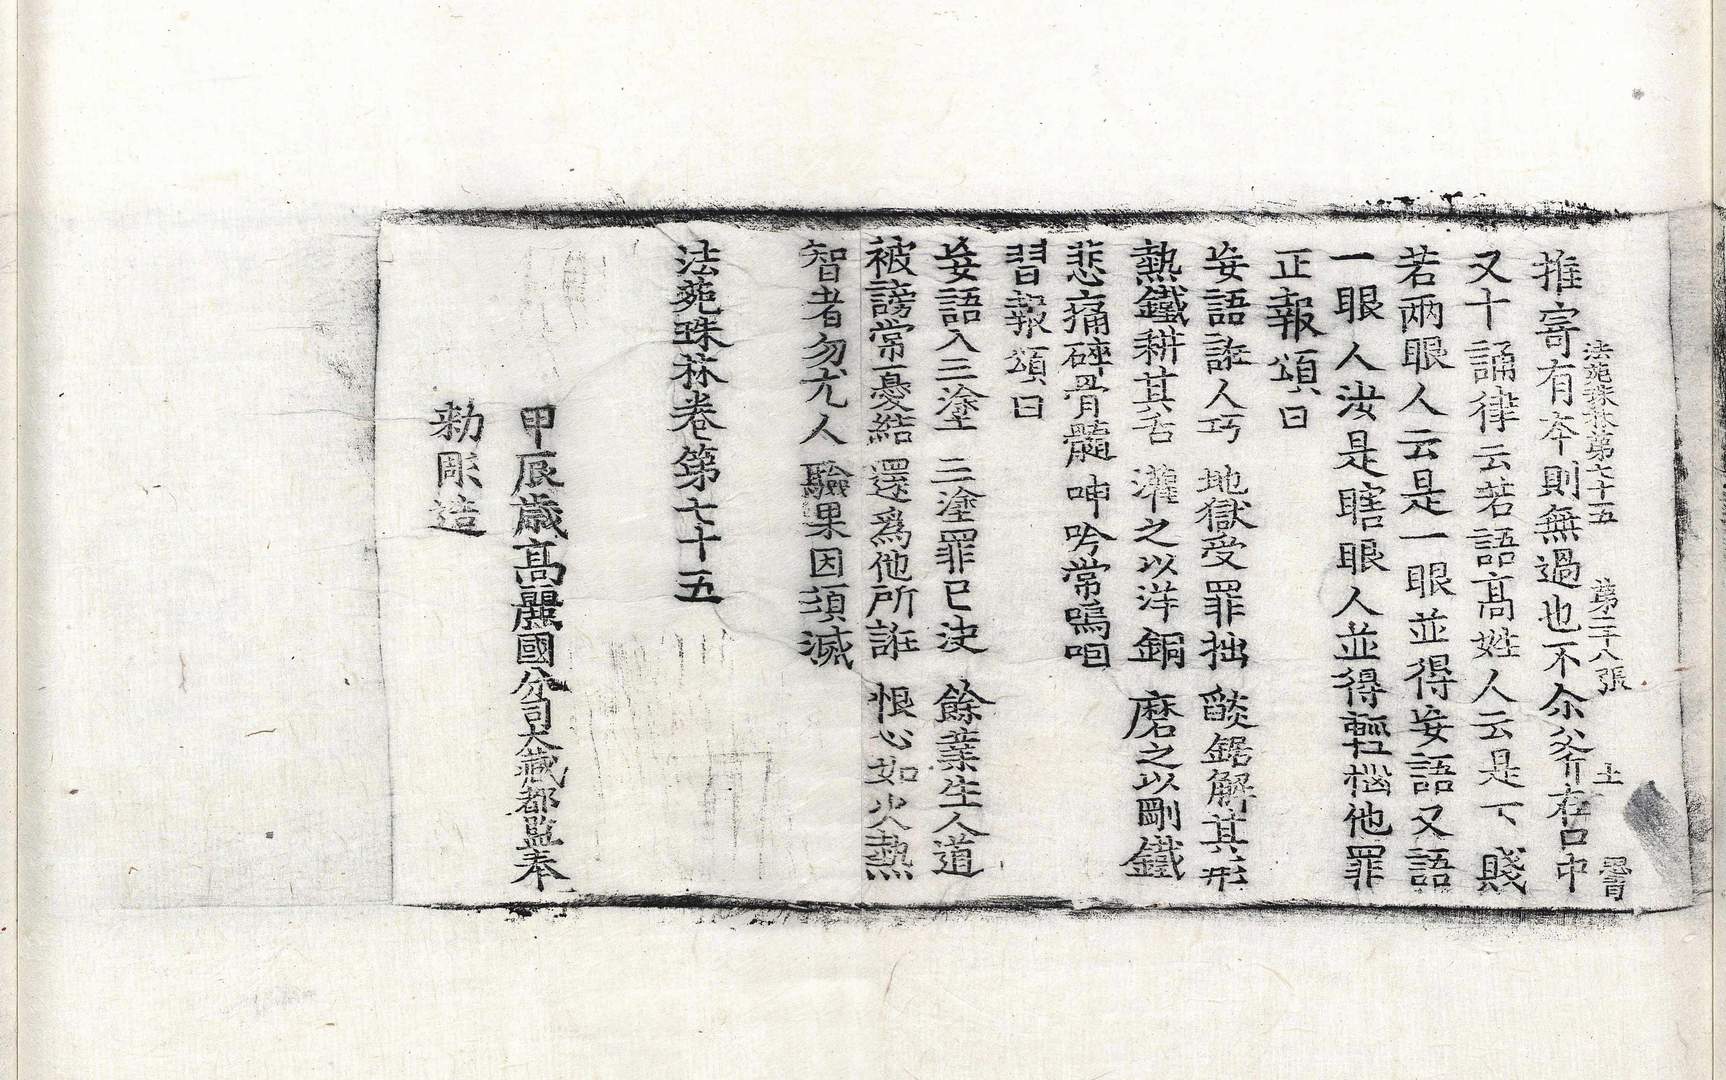 法苑珠林第七十五 第二十八張 土
推寄有本則無過也不尒斧在口中
又十誦律云若語高姓人云是下賤
若兩眼人云是一眼並得妄語又語
一眼人汝是瞎眼人並得輕惱他罪
正報頌曰
妄語誑人巧 地獄受罪拙 燄鋸解其形
熱鐵耕其舌 灌之以洋銅 磨之以剛鐵
悲痛碎骨髓 呻吟常嗚咽
習報頌曰
妄語入三塗 三塗罪已決 餘業生人道
被謗常憂結 還爲他所誑 恨心如火熱
智者勿尤人 驗果因須滅
法苑珠林卷第七十五
甲辰歳高麗國分司大藏都監奉
勑彫造